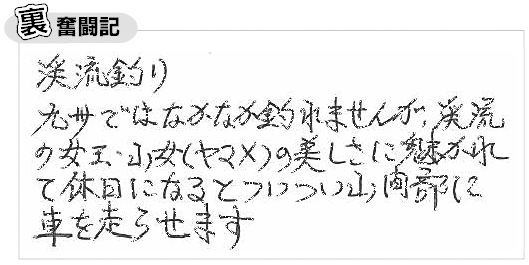 裏奮闘記
渓流釣り
九州ではなかなか釣れませんが、渓流
の女王・山女(ヤマメ)の美しさに魅かれ
て休日になるとついつい山間部に
車を走らせます